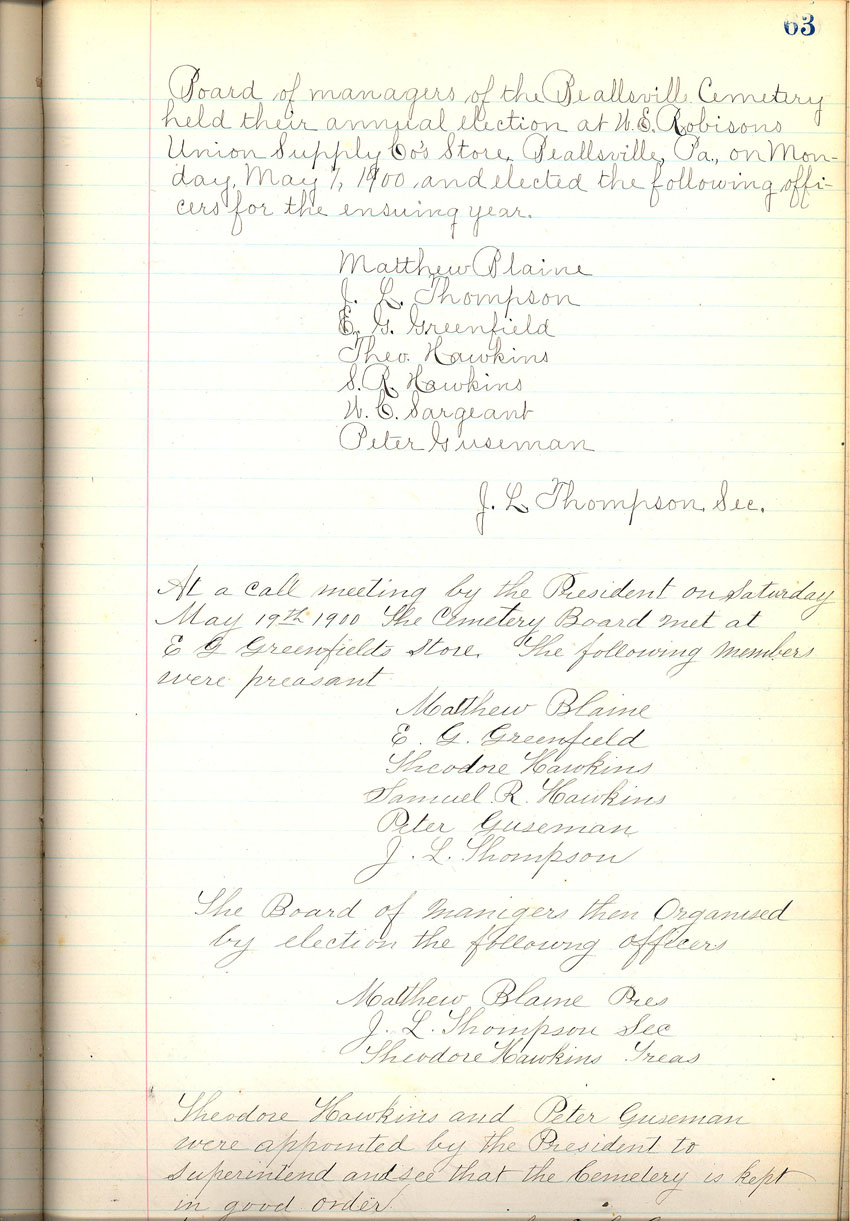 63
Board of managers of the Beallsville Cemetery
held their annual election at W. E. Robisons
Union Supply Co's Store, Beallsville, Pa., on Mon-
day, May 7, 1900 and elected the following offi-
cers for the ensuing year.
Matthew Blaine
J. L. Thompson
E. G. Greenfield
Theo. Hawkins
S. R. Hawkins
W. C. Sargeant
Peter Guseman
J. L. Thompson, Sec.
At a call meeting by the President on Saturday
May 19th 1900 The Cemetery Board met at
E G Greenfields Store. The following members
were preasant
Matthew Blaine
E. G. Greenfield
Theodore Hawkins
Samuel R. Hawkins
Peter Guseman
J. L. Thompson
The Board of manigers then Organised
by election the followng officers
Matthew Blaine Pres
J. L. Thompson Sec
Theodore Hawkins Treas
Theodore Hawkins and Peter Guseman
were appointed by the President to
Superintend and see that the Cemetery is kept
in good order